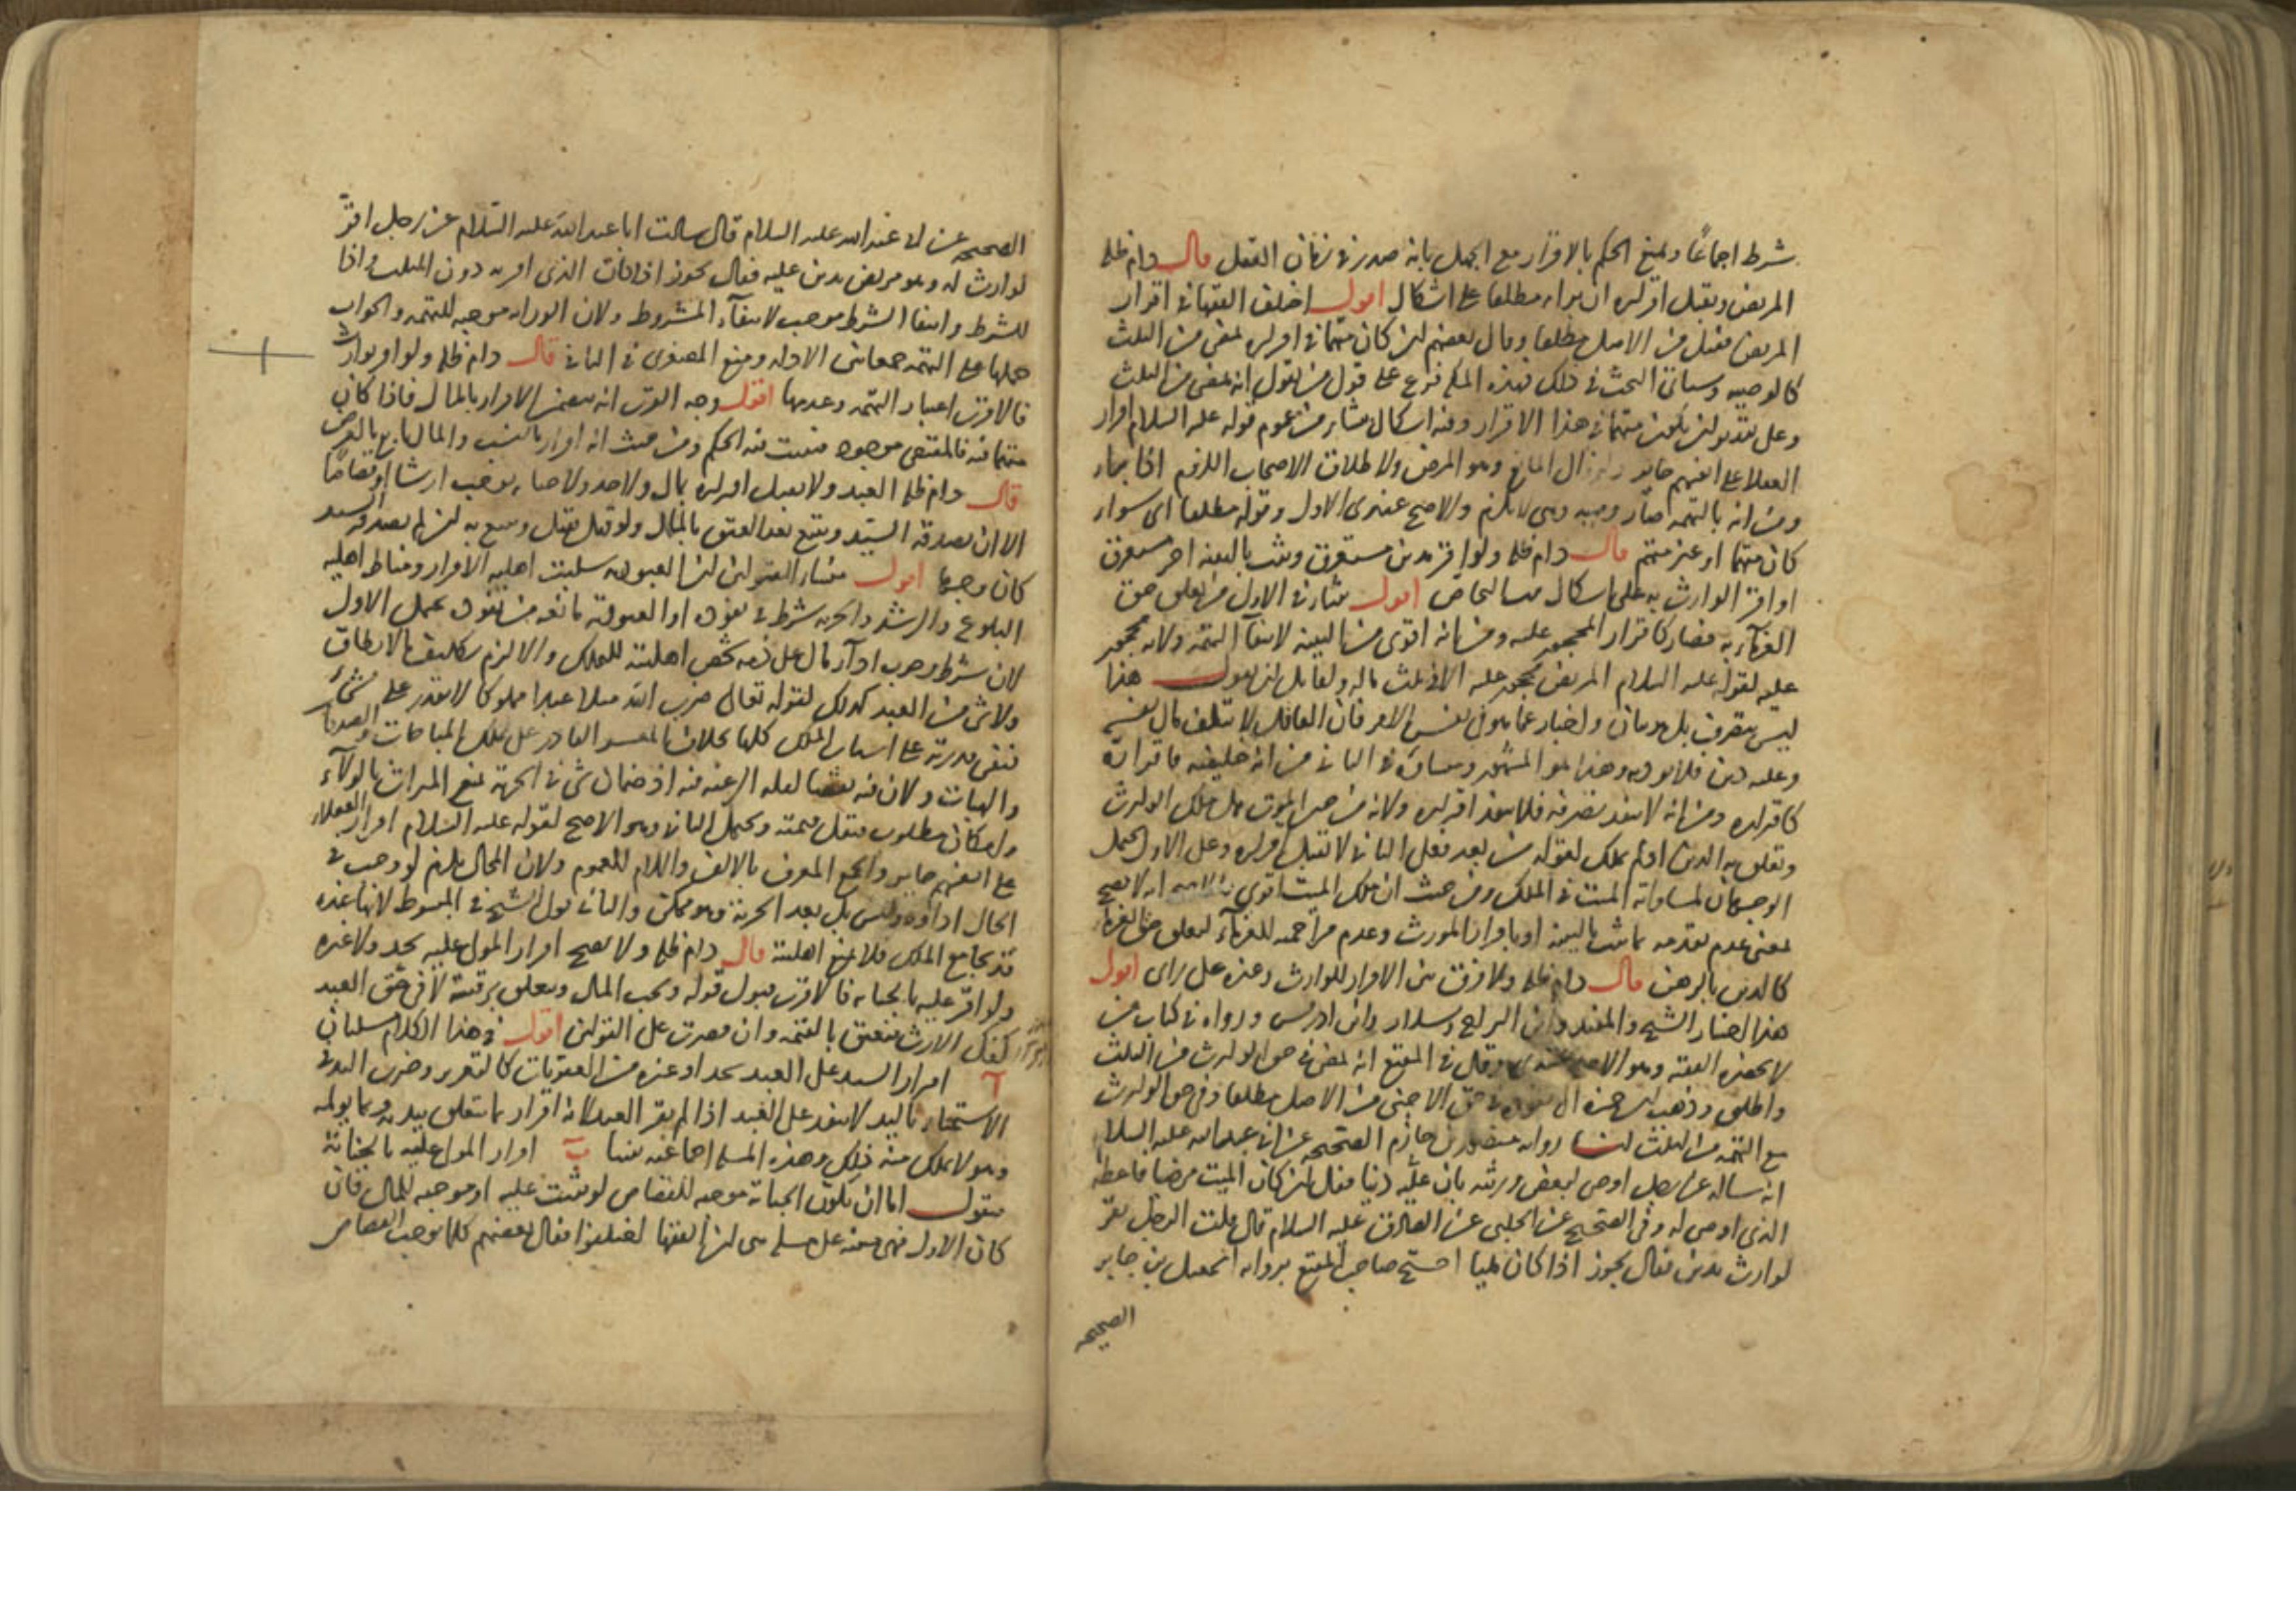 شرط اجماعًا ويمنع الحكم بالاقرار مع الجهل بانه صدر في زمان العقل قال دام ظله
المريض ويقبل اقراره ان برا مطلقا على اشكال اقول اختلف الفقها في اقرار
المريض فقيل من الاصل مطلقا وقال بعضهم ان كان متهما في اقراره لمضى من الثلث
كالوصيه وسياتي البحث في ذلك فهذه المسله فرع على قول من يقول انه يمضى من الثلث
وعلى تقدير ان يكون متهما في هذا الاقرار وفيه اشكال ينشا من عموم قوله عليه السلام اقرار
العقلا على انفسهم جايز زال المانع وهو المرض ولاطلاق الاصحاب اللزوم اذا برا
ومن انه بالتهمه صار وصيه وهي لا تلزم والاصح عندي الاول وقوله مطلقا اي سوا
كان متهما او غير متهم قال دام ظله ولو اقر بدين مستغرق وثبت بالبينه اخر مستغرق
او اقر الوارث به على اشكال فيهما التحاص اقول منشاء في الاول من تعلق حق
الغرمآء به فصار كاقرار المحجور عليه ومن انه اقوى من البينه لانتفآ التهمه ولانه محجور
عليه لقوله عليه السلام المريض محجور عليه الا في ثلث ماله ولقايل ان يقول هذا
ليس بتصرف بل هو اخبار عما هو في نفس الامر فان العاقل لا يتلف مال نفسه
وعليه دين فلا يوديه وهذا هو المشهور ومنشاؤه في الثاني من انه خليفته فاقراره
كاقراره ومن انه لا ينفذ تصرفه فلا ينفذ اقراره ولانه من حين الموت هل يملك الوارث
وتعلق به الدين او لم يملك لقوله من بعد فعلى الثاني لا تقبل اقراره وعلى الاول يحتمل
الوجهان لمساواته الميت في الملك ومن حيث ان ملك الميت اقوى انه لا يصح
بمعنى عدم تقدمه ما ثبت بالبينه او باقرار المورث وعدم مزاحمه للغرمآء لتعلق حق الغرماء
كالدين بالرهن قال دام ظله ولا فرق بين الاقرار للوارث وغيره على راى اقول
هذا اختيار الشيخ والمفيد وابن البراج وسلار وابن ادريس ورواه في كتاب من
لا يحضره الفقيه وهو الاصح عندي وقال في المقنع انه يمضى في حق الوارث من الثلث
واطلق وذهب ابن حمزه الى نفوذه في حق الاجنبى من الاصل مطلقا وفي حق الوارث
مع التهمه من الثلث لنا روايه منصور بن حازم الصحيحه عن ابي عبد الله عليه السلام
انه ساله عن رجل اوصى لبعض ورثته بان عليه دينا فقال ان كان الميت مرضيا فاعطه
الذي اوصى له وفي الصحيح عن الحلبى عن الصادق عليه السلام قال قلت الرجل يقر
لوارث بدين فقال يجوز اذا كان مليا احتج صاحب المقنع بروايه اسمعيل بن جابر
الصحيحه
الصحيحه عن ابي عبد الله عليه السلام قال سالت ابا عبد الله عليه السلام عن رجل اقرّ
لوارث له وهو مريض بدين عليه فقال يجوز اذا كان الذي اقر به دون الثلث واذا
للشرط وانتفا الشرط موجب لانتفآء المشروط ولان الوراثه موجبه للتهمه والجواب
حملها على التهمه جمعا بين الادله ومنع الصغرى في الثاني قال دام ظله ولو اقر بوارث
فالاقرب اعتبار التهمه وعدمها اقول وجه القرب انه يتضمن الاقرار بالمال فاذا كان
متهما فيه فالمقتضى موجود فثبت فيه الحكم ومن حيث انه اقرار بالنسب والمال تابع بالعرض
قال دام ظله العبد ولا يقبل اقراره بمال ولا حد ولا جنايه يوجب ارشا او قصاصا
الا ان يصدقه السيّد ويتبع بعد العتق بالمال ولو قيل يقبل ويتبع به ان لم يصدقه السيد
كان وجها اقول منشا القولين ان العبوديه سلبت اهليه الاقرار ومناط اهليه
البلوغ والرشد والحريه شرط في نفوذه او العبوديه مانعه من نفوذه يحمل الاول
لان شرط وجوب ادآء مال على ذمه شخص اهليته للتملك والا لزم تكليف ما لا يطاق
ولا شى من العبد كذلك لقوله تعالى ضرب الله مثلا عبدا مملوكا لا يقدر على شىء
فنفى قدرته على اسباب الملك كلها بخلاف المعسر القادر على تملك المباحات والصدقات
والهبات ولان فيه اذ ضمان شى في الحريه يمنع الميراث بالولآء
وله مكان مطلوب فتقل قيمته ويحتمل الثاني وهو الاصح لقوله عليه السلام اقرار العقلاء
على انفسهم جايز والجمع المعرف بالالف واللام للعموم ولان المحال يلزم لو وجب في
الحال اداؤه وليس بل بعد الحرية وهو ممكن والثاني قول الشيخ في المبسوط لانها عنده
قد تجامع الملك فلا يمنع اهليته قال دام ظله ولا يصح اقرار المولى عليه بحد ولا غيره
ولو اقرّ عليه بالجنايه فالاقرب قبول قوله ويجب المال ويتعلق برقبته لا في حق العبد
كفك الارث فيعتق بالقيمه وان قصرت على القولين اقول في هذا الكلام مسلتان
آ اقرار السيد على العبد بحد او غيره من العقوبات كالتعزير وضرب اليد في
الاستمناء باليد لا ينفذ على العبد اذا لم يقر العبد لانه اقرار بما يتعلق ببدنه وبما يولمه
وهو لا يملك منه ذلك وهذه المسله اجماعيه بيننا ب اقرار المولى عليه بالجنايه
فنقول اما ان تكون الجناية موجبه للقصاص لو ثبتت عليه او موجبه للمال فان
كان الاول فهي مبنيه على مسله هي ان الفقها اختلفوا فقال بعضهم كلما يوجب القصاص